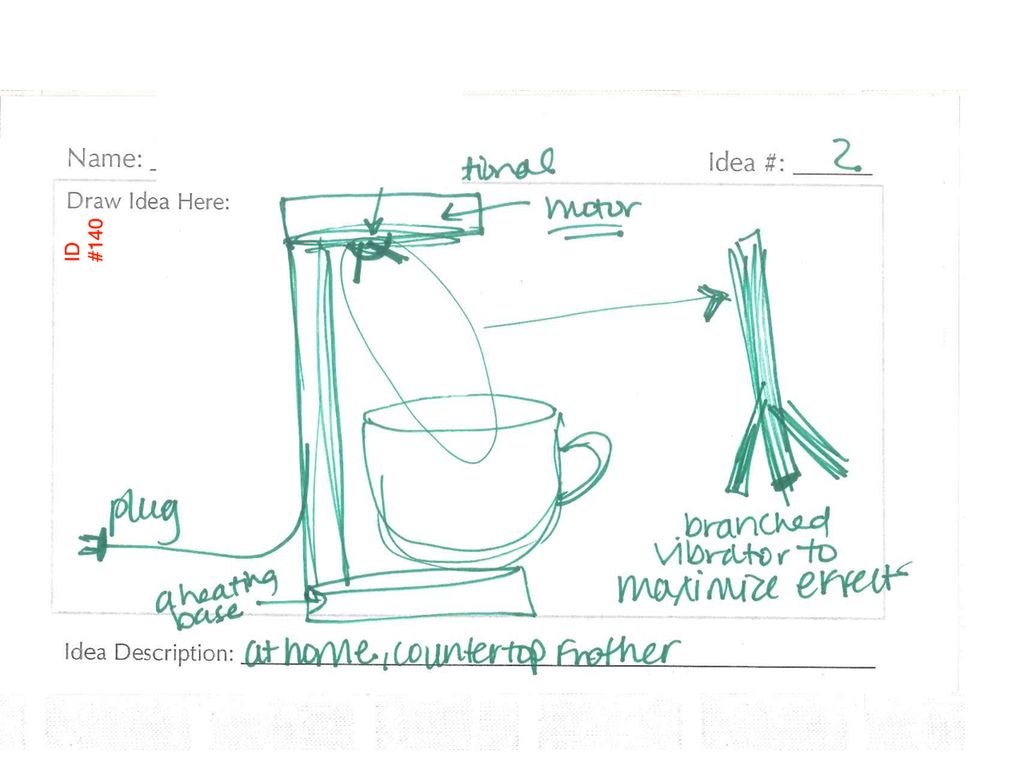 Name: _
tional
Idea #: 2.
Draw Idea Here:
ID
#140
motor
plug
a heating
base
branched
vibrator to
maximize effect
Idea Description: at home, countertop Frother